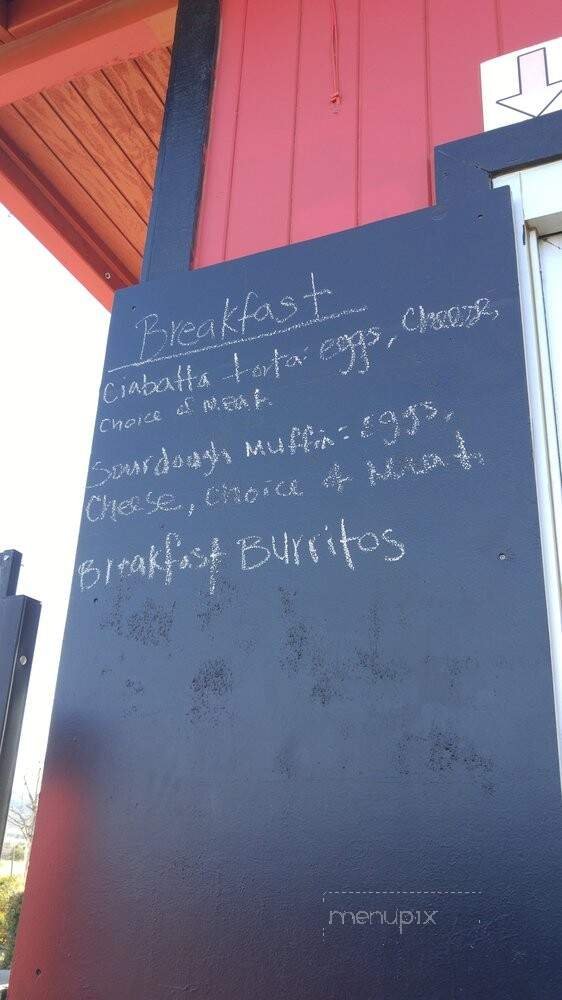 Breakfast
Ciabatta torta: eggs, cheese,
choice of meat
Sourdough Muffin: eggs,
Cheese, choice of meat,
Breakfast Burritos
menupix